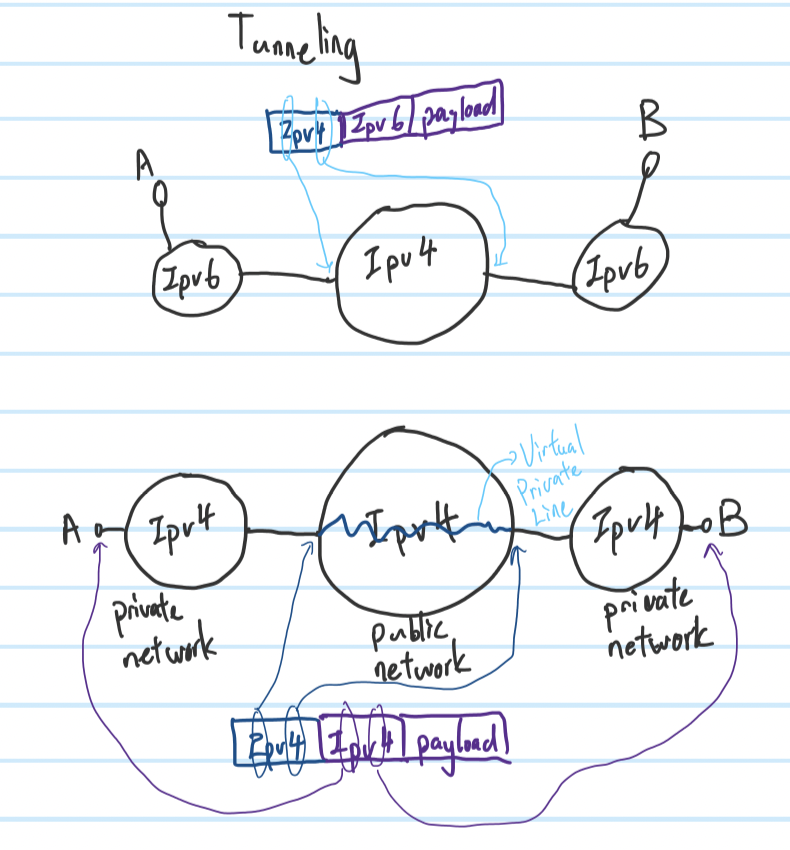 Tunneling
Ipv4 Ipv6 payload
A
B
Ipv6
Ipv4
Ipv6
Virtual
Private
Line
A
Ipv4
Ipv4
Ipv4
B
private
network
public
network
private
network
Ipv4 Ipv4 payload